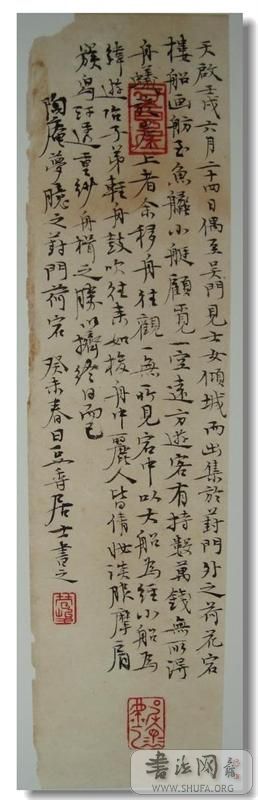 天啟壬戌六月二十四日偶至吳門見士女傾城而出集於葑門外之荷花宕
樓船画舫至魚艖小艇顧覓一空遠方遊客有持數萬錢無所得
舟蟻上者余移舟往觀一無所見宕中以大船為經小船為
緯遊冶子弟輕舟鼓吹往來如梭舟中麗人皆倩妝淡服摩肩
簇舄汗透重紗舟楫之勝以擠終日而已
陶庵夢憶之葑門荷宕 癸未春日豆香居士書之
书法网
WWW.SHUFA.ORG